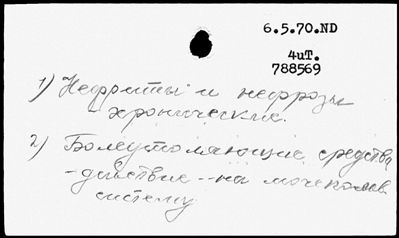 6.5.70.ND
4uT.
788569
1) Нефриты и нефрозы
- хронические.
2) Болеутоляющие средства
- действие - на мочеполов.
систему